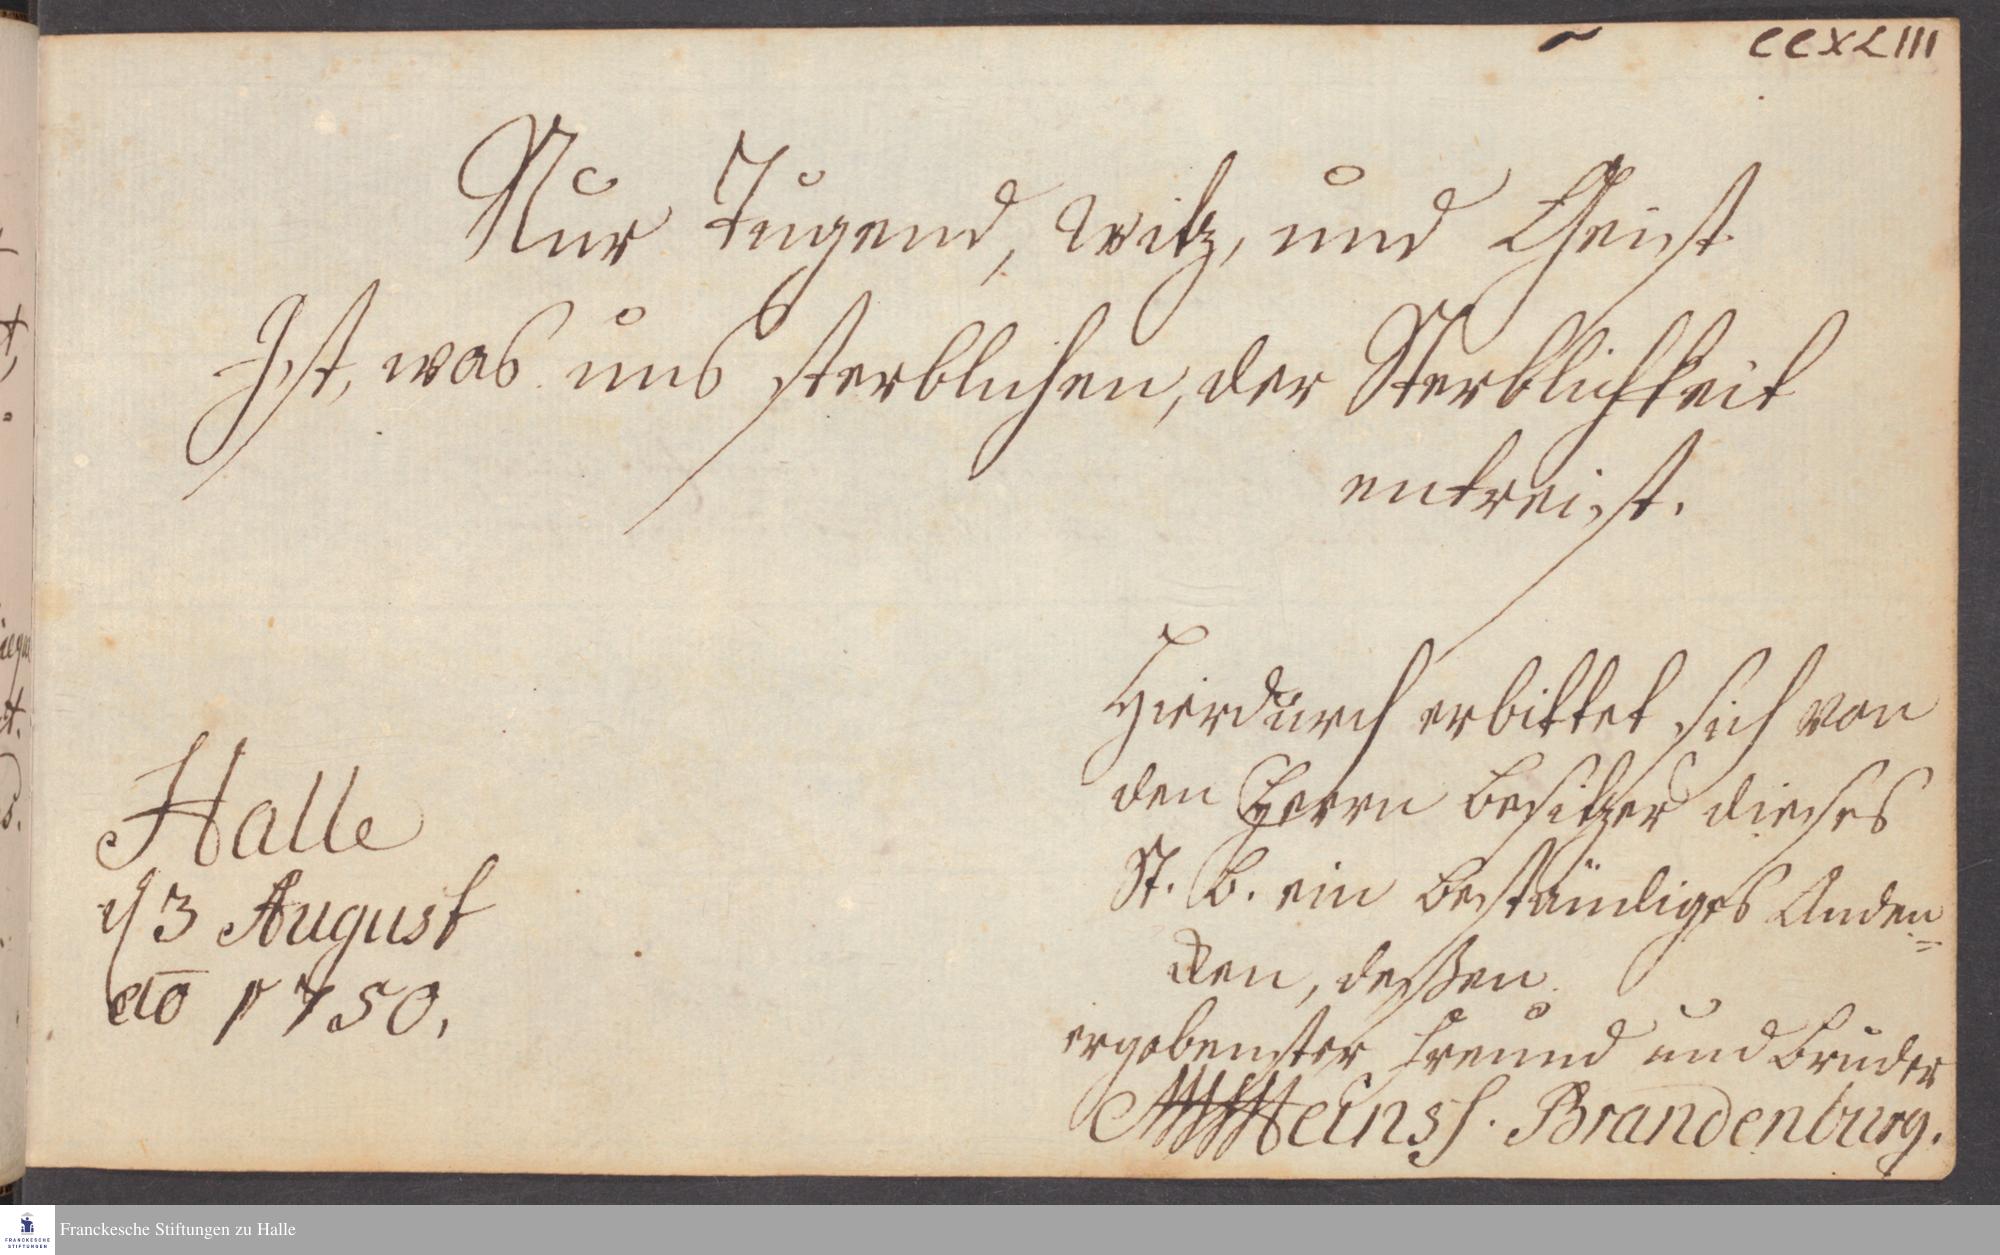 CCXLIII
Nur Tugend, Witz, und Geist
Ist, was uns sterblichen, der Sterblichkeit
entreist.
Hierdurch erbittet sich von
den Herrn Besitzer dieses
St. B. ein beständiges Anden=
cken, deßen
ergebenster Freund und Bruder
Brandenburg.
Halle
d 3 August
ao 1750.
iegn
t.
s.
FRANCKESCHE
STIFTUNGEN
Franckesche Stiftungen zu Halle